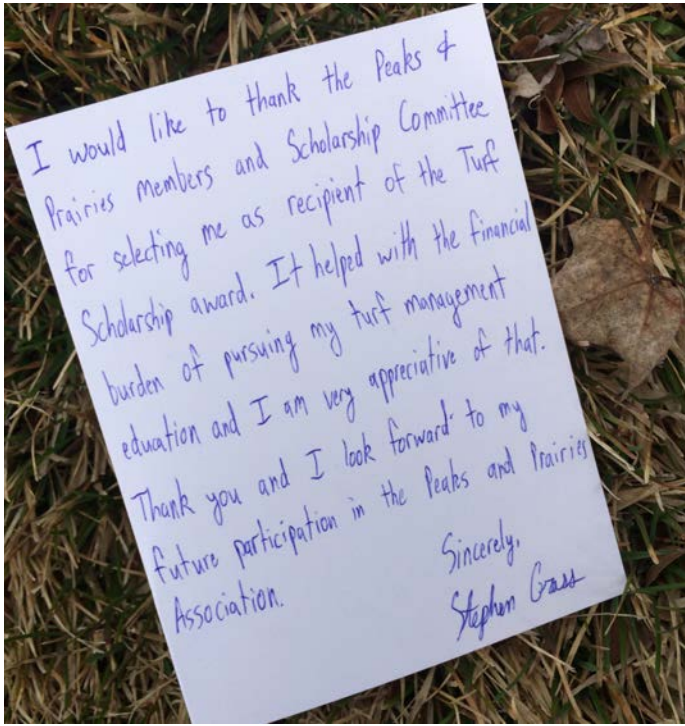 I would like to thank the Peaks &
Prairies members and Scholarship Committee
for selecting me as recipient of the Turf
Scholarship award. It helped with the financial
burden of pursuing my turf management
education and I am very appreciative of that.
Thank you and I look forward to my
future participation in the Peaks and Prairies
Association.
Sincerely,
Stephen Grass